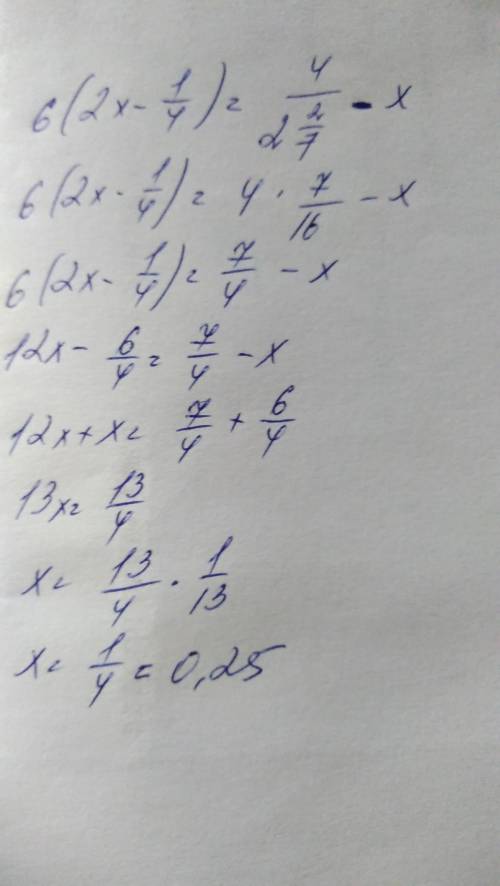 6(2x - 1/4) = 4/(2 2/7) - x
6(2x - 1/4) = 4 · 7/16 - x
6(2x - 1/4) = 7/4 - x
12x - 6/4 = 7/4 - x
12x + x = 7/4 + 6/4
13x = 13/4
x = 13/4 · 1/13
x = 1/4 = 0,25